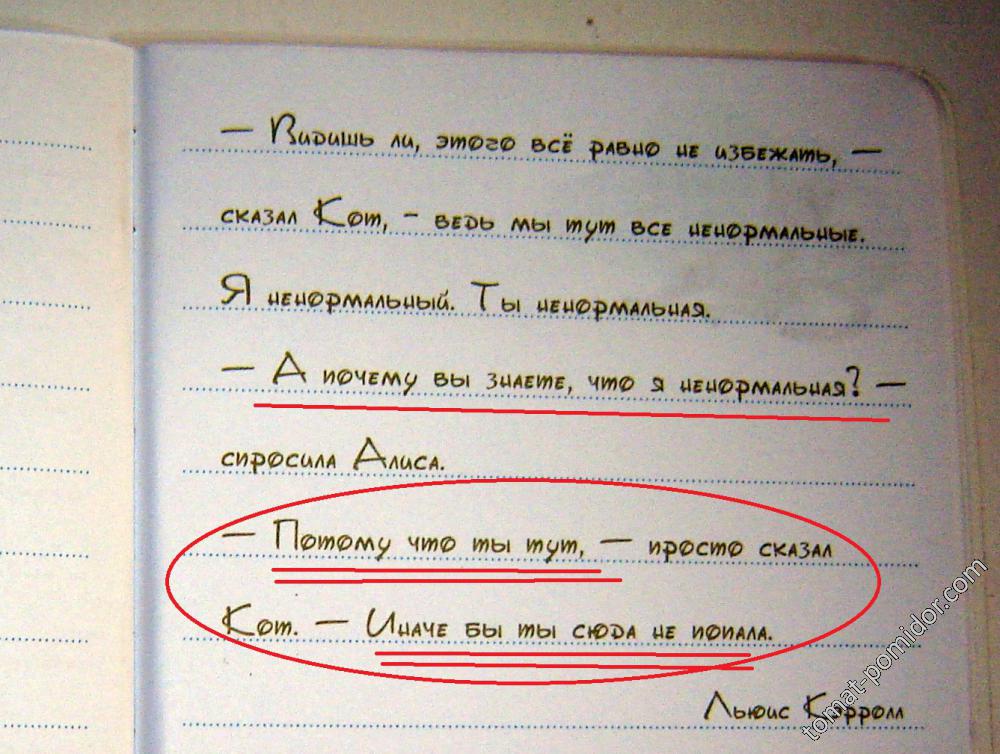 — Видишь ли, этого всё равно не избежать, —
сказал Кот, - ведь мы тут все ненормальные.
Я ненормальный. Ты ненормальная.
— А почему вы знаете, что я ненормальная? —
спросила Алиса.
— Потому что ты тут, — просто сказал
Кот. — Иначе бы ты сюда не попала.
Льюис Кэрролл
tomat-pomidor.com